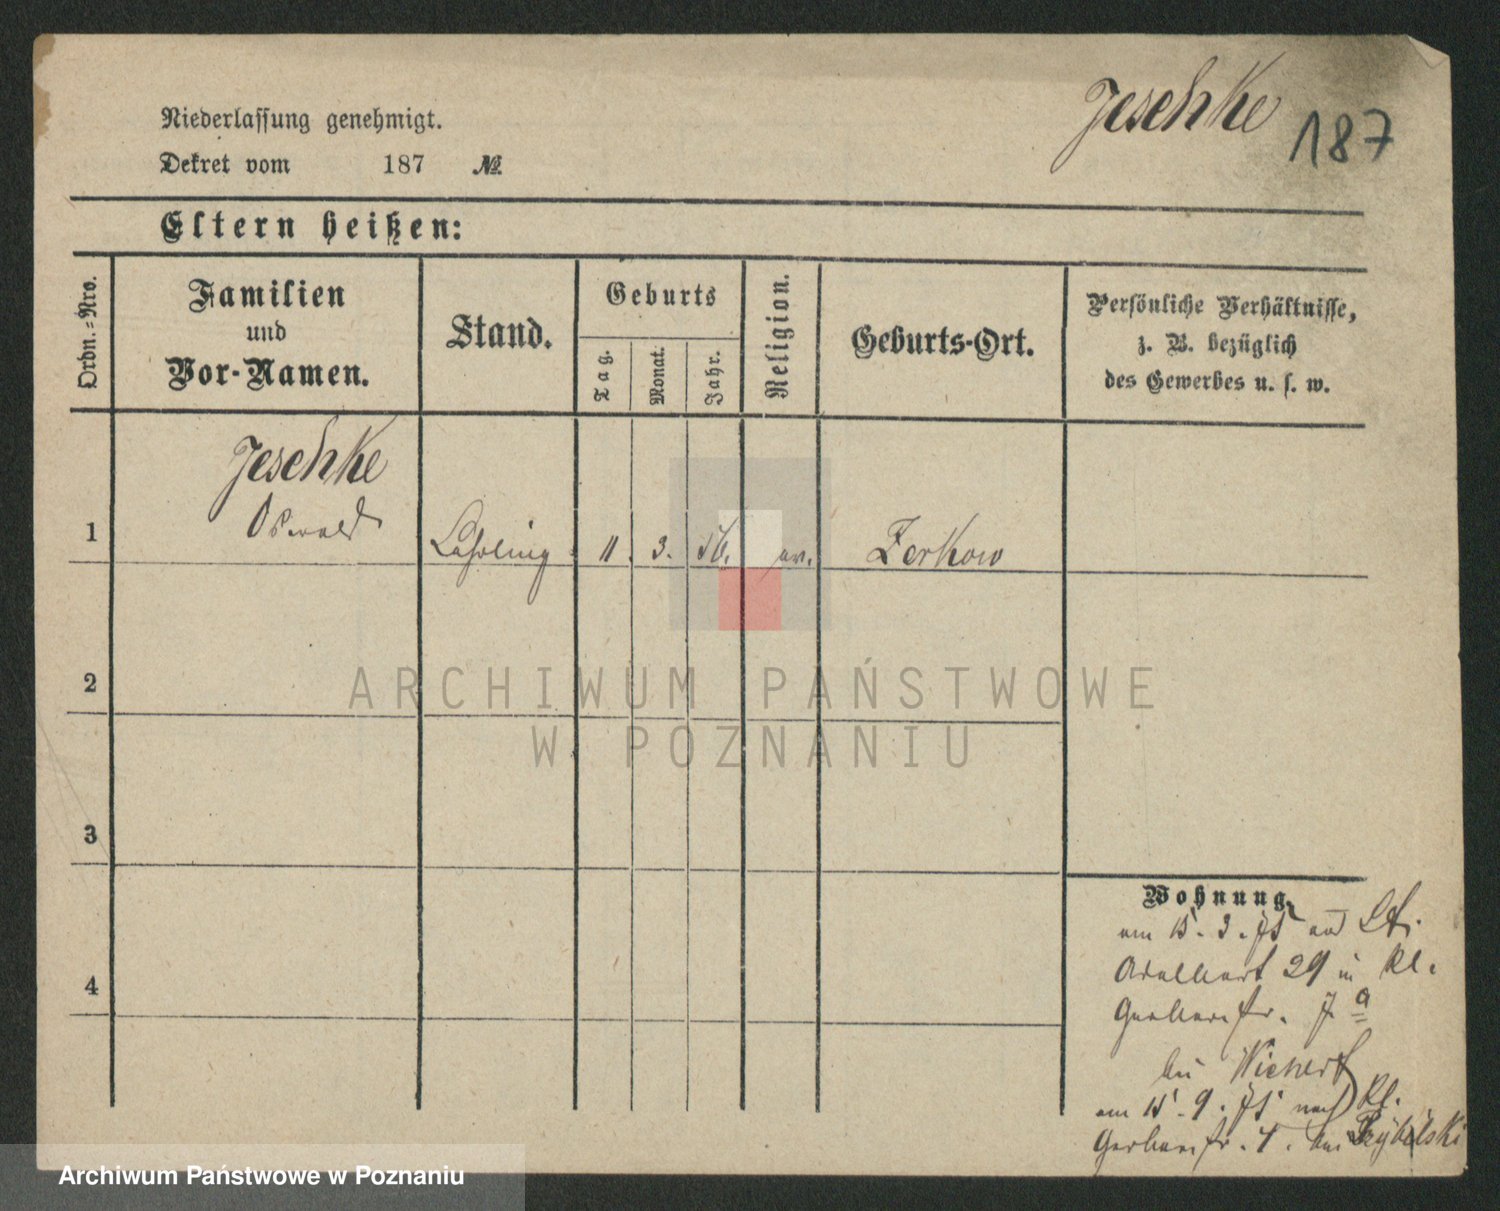 Jeschke
187
Niederlassung genehmigt.
Dekret vom 187 №
Eltern heißen:
Ordn.=Nro.
Familien
und
Vor-Namen.
Stand.
Geburts
Tag.
Monat.
Jahr.
Religion.
Geburts-Ort.
Persönliche Verhältnisse,
z. B. bezüglich
des Gewerbes u. s. w.
Jeschke
Oswald
1 Lehrling 11. 3. 56. ev. Zerkow
2
3
4
ARCHIWUM PAŃSTWOWE
W POZNANIU
Wohnung.
am 15. 3. 75 von St.
Adalbert 29 in kl.
Gerberstr. 7 a
bei Wichert
am 15. 9. 75 nach kl.
Gerberstr. 4. bei Przybilski
Archiwum Państwowe w Poznaniu